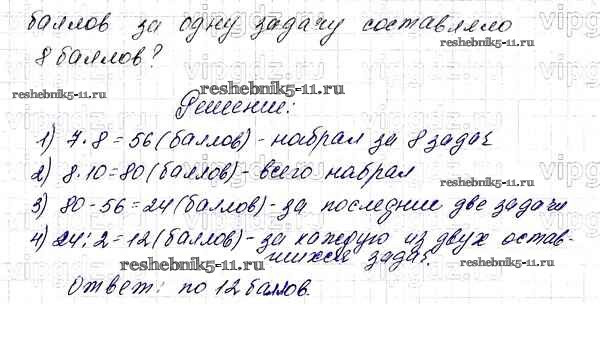 баллов за одну задачу составляло
reshebnik5-11.ru
8 баллов?
vipgdz.ru
reshebnik5-11.ru
reshebnik5-11.ru
Решение:
1) 7·8=56 (баллов) - набрал за 8 задач
2) 8·10=80 (баллов) - всего набрал
reshebnik5-11.ru
3) 80-56=24 (баллов) - за последние две задачи
4) 24:2=12 (баллов) - за каждую из двух остав-
шихся задач.
reshebnik5-11.ru
Ответ: по 12 баллов.